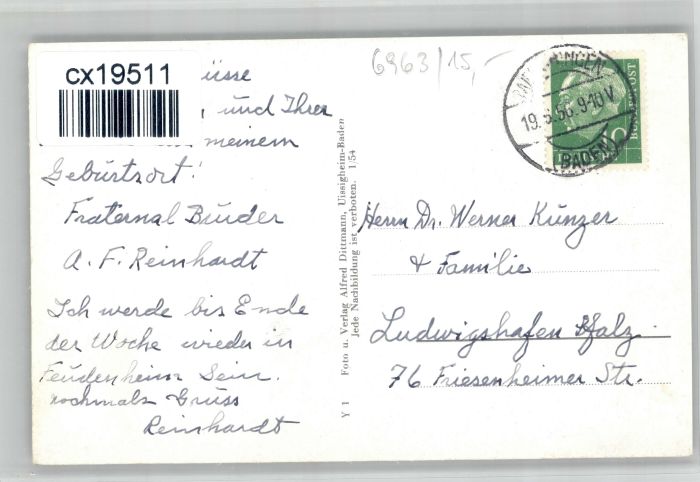 cx19511
üsse
, und Ihrer
meinem
Geburtsort!
Fraternal Bruder
A. F. Reinhardt
Ich werde bis Ende
der Woche wieder in
Feudenheim Sein.
nochmals Gruss
Reinhardt
Y 1 Foto u. Verlag Alfred Dittmann, Uissigheim-Baden
Jede Nachbildung ist verboten. 1/54
6963/15,-
19. 56. 9-10 V
BADEN
10
BUNDESPOST
Herrn Dr. Werner Künzer
& Familie
Ludwigshafen Pfalz
76 Friesenheimer Str.